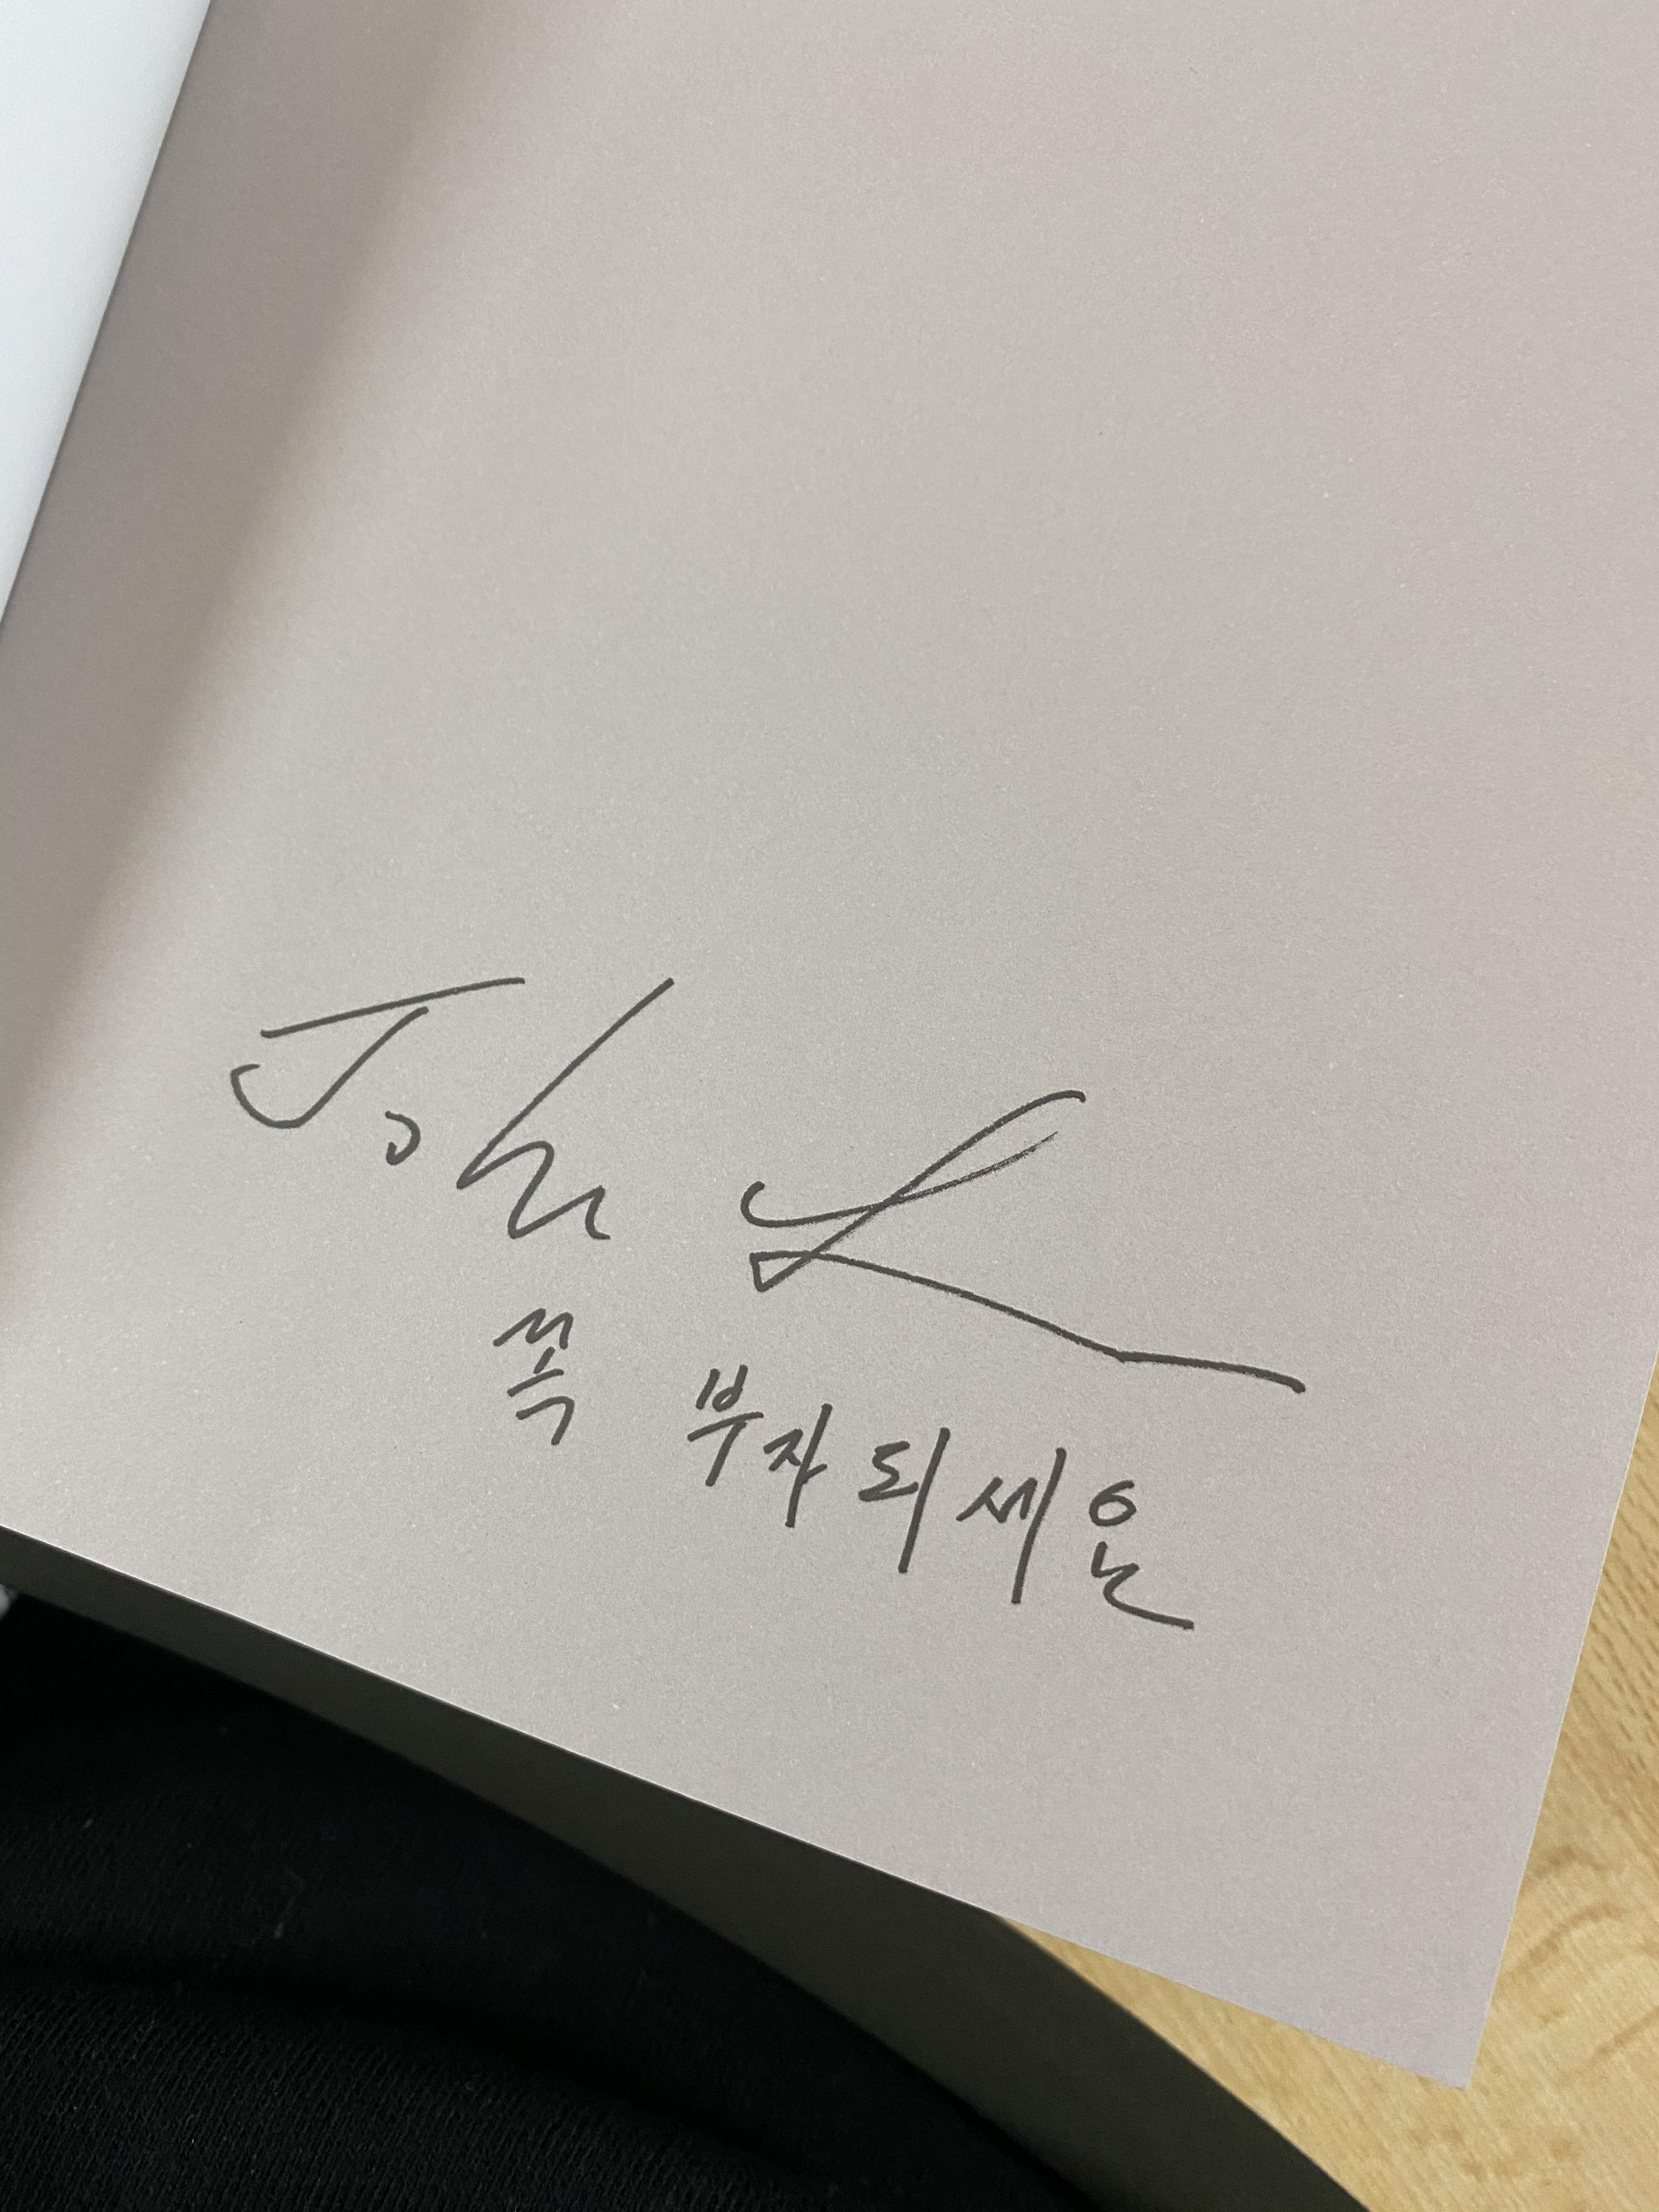 John
쪽 부자 되세요